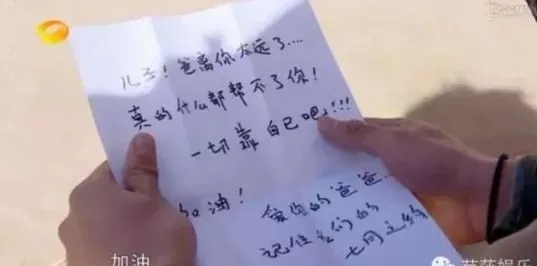 儿子!爸离你太远了....
真的什么都帮不了你!
一切靠自己吧!!!
加油!
爱你的爸爸...
记住我们的
七周之约
加油